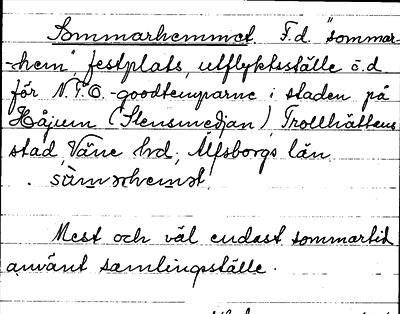 Sommarhemmet. F.d. "sommar-
-hem" festplats, utflyktsställe o.d
för N.T.O.-goodtemparne i staden på
Håjum (Stensmedjan), Trollhättans
stad, Väne hd, Älfsborgs län.
Mest och väl endast sommartid
använt samlingsställe.